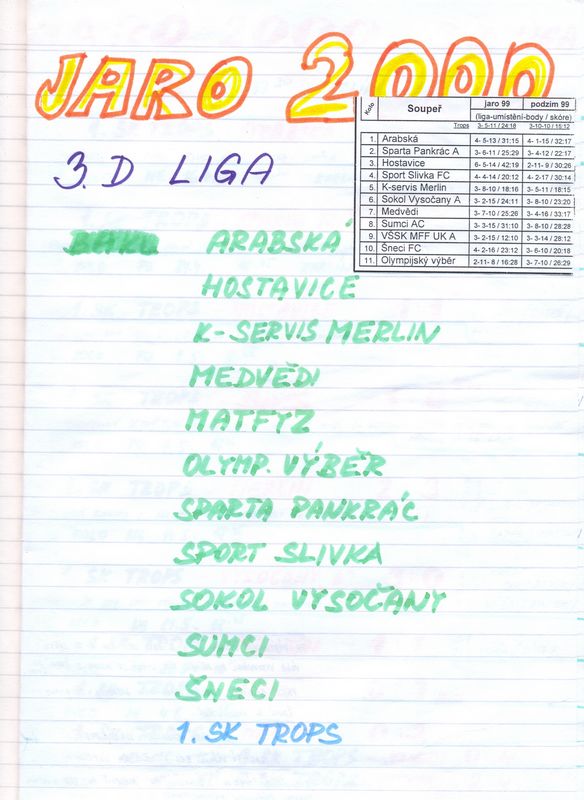 JARO 2000
3. D LIGA
Kolo Soupeř jaro 99 podzim 99
(liga-umístění-body / skóre)
Trops 3- 5-11 / 24:18 3-10-10 / 15:12
1. Arabská 4- 5-13 / 31:15 4- 1-15 / 32:17
2. Sparta Pankrác A 3- 6-11 / 25:29 3- 4-12 / 22:17
3. Hostavice 6- 5-14 / 42:19 2-11- 9 / 30:26
4. Sport Slivka FC 4- 4-14 / 20:12 4- 2-17 / 30:14
5. K-servis Merlin 3- 8-10 / 18:16 3- 5-11 / 18:15
6. Sokol Vysočany A 3- 2-15 / 24:11 3- 8-10 / 23:20
7. Medvědi 3- 7-10 / 25:26 3- 4-16 / 33:17
8. Sumci AC 3- 3-15 / 31:10 3- 8-10 / 28:28
9. VŠSK MFF UK A 3- 2-15 / 12:10 3- 3-14 / 28:12
10. Šneci FC 4- 2-16 / 23:12 3- 6-10 / 20:18
11. Olympijský výběr 2-11- 8 / 16:28 3- 7-10 / 26:29
ARABSKÁ
HOSTAVICE
K-SERVIS MERLIN
MEDVĚDI
MATFYZ
OLYMP. VÝBĚR
SPARTA PANKRÁC
SPORT SLIVKA
SOKOL VYSOČANY
SUMCI
ŠNECI
1. SK TROPS